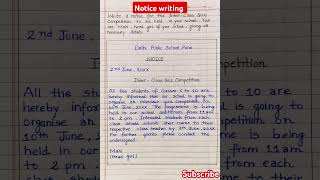 Notice writing
Write a notice for the Inter-Class Quiz
Competition to be held in your school. You
are Mani, head girl of your school, giving all
necessary details
Delhi Public School, Pune
NOTICE
2nd June, 20XX
Inter - Class Quiz Competition
All the students of classes 6 to 10 are
hereby informed that our school is going to
organise an interclass quiz competition on
10th June, 20XX. The programme is being
held in our school auditorium from 11 am
to 2 pm. Interested students from each
class should submit their name to their
respective class teacher by 7th June, 20XX.
For further queries please contact the
undersigned.
Mani
(Head girl)
Subscribe